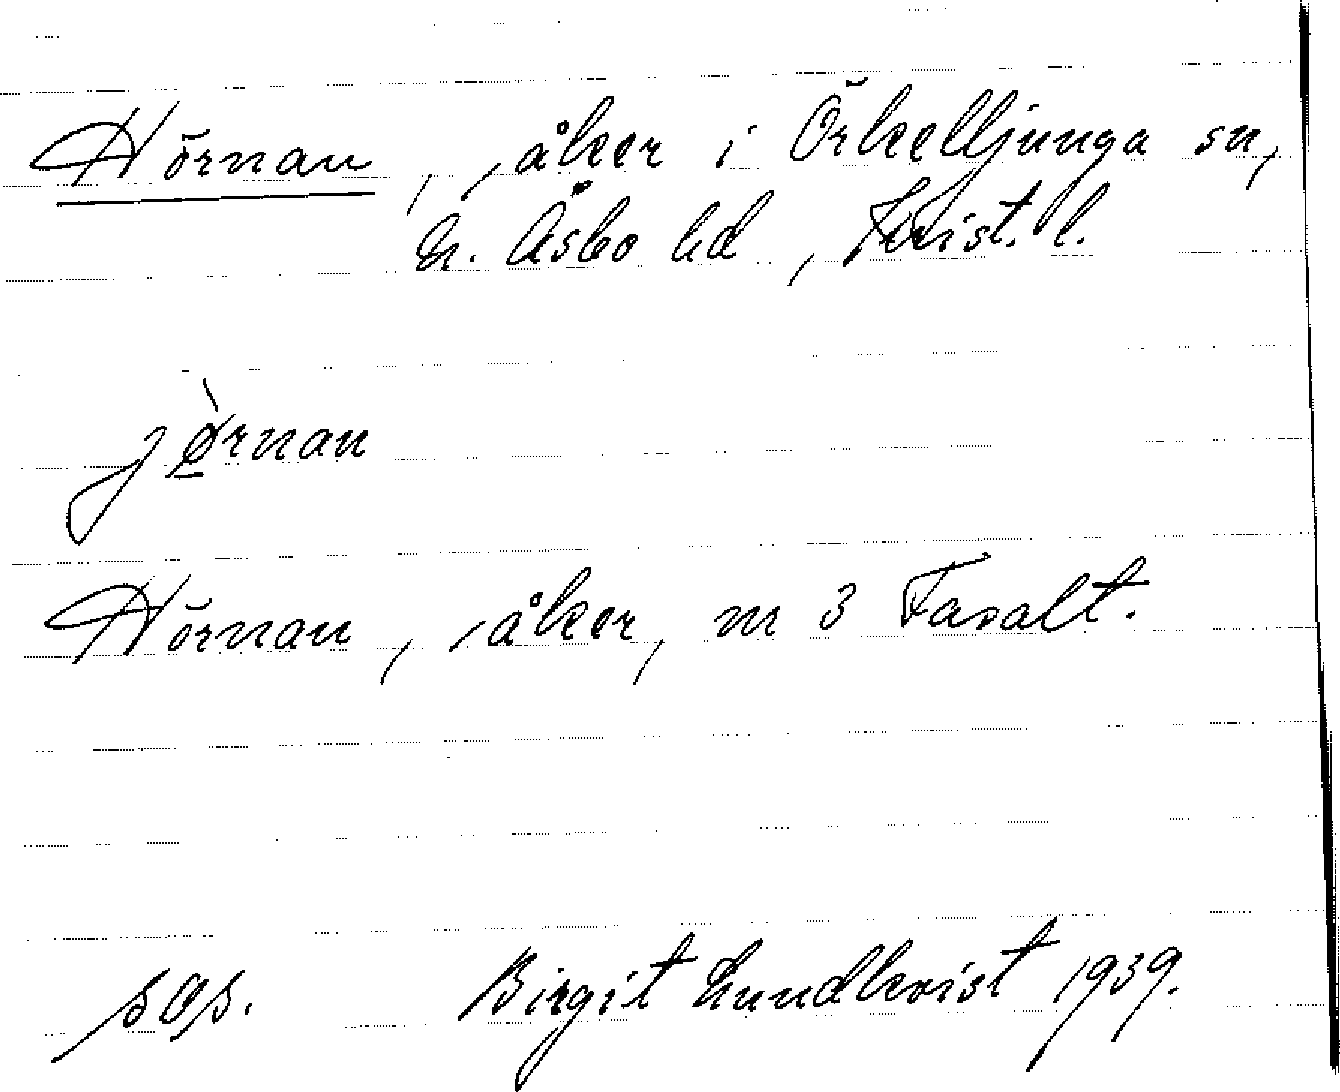 Hörnan, , åker i Örkelljunga sn,
N. Åsbo hd, Krist. l.
jø̀rnan
Hörnan, , åker, nr 3 Fasalt.
Birgit Lundkvist 1939.